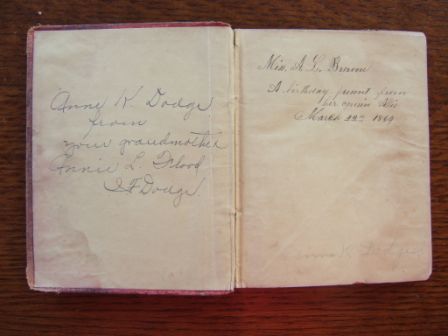 Anne K Dodge
from
your grandmother
Annie L. Flood
Dodge.
Miss. A. L.
A birthday present from
her cousin
March 22nd 1869
Anne K Dodge